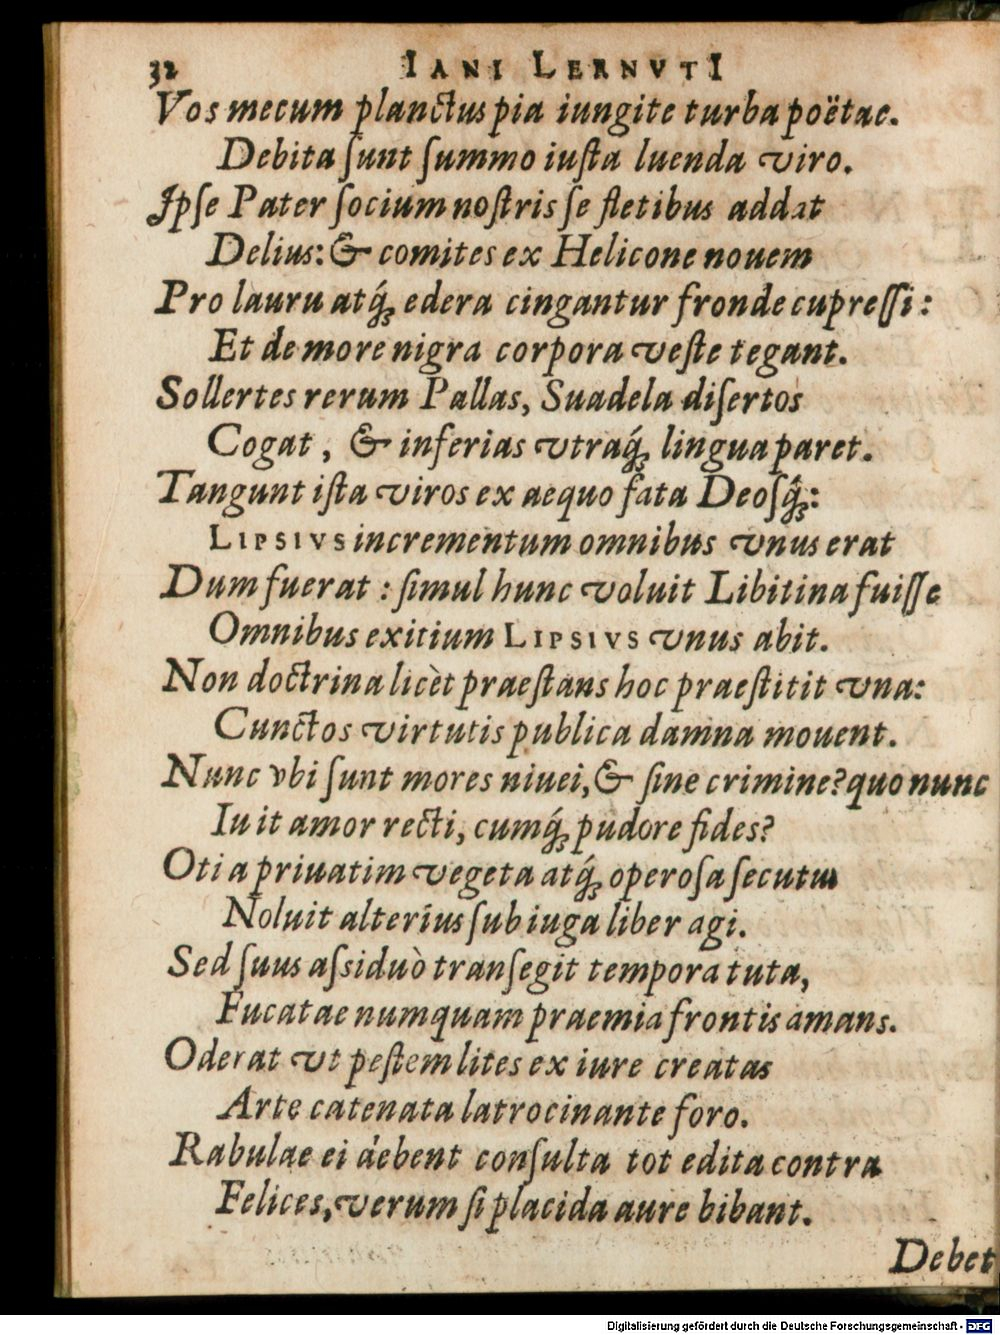 32 IANI LERNVTI
Vos mecum planctus pia iungite turba poëtae.
Debita ſunt ſummo iuſta luenda viro.
Ipſe Pater ſocium noſtris ſe fletibus addat
Delius: & comites ex Helicone nouem
Pro lauru atq́ꝫ edera cingantur fronde cupreſſi:
Et de more nigra corpora veſte tegant.
Sollertes rerum Pallas, Suadela diſertos
Cogat, & inferias vtraq́ꝫ lingua paret.
Tangunt iſta viros ex aequo fata Deoſq́ꝫ:
LIPSIVS incrementum omnibus vnus erat
Dum fuerat: ſimul hunc voluit Libitina fuiſſe
Omnibus exitium LIPSIVS vnus abit.
Non doctrina licèt praeſtans hoc praeſtitit vna:
Cunctos virtutis publica damna mouent.
Nunc vbi ſunt mores niuei, & ſine crimine? quo nunc
Iuit amor recti, cumq́ꝫ pudore fides?
Otia priuatim vegeta atq́ꝫ operoſa ſecutus
Noluit alterius ſub iuga liber agi.
Sed ſuus aſsiduò tranſegit tempora tuta,
Fucatae numquam praemia frontis amans.
Oderat vt peſtem lites ex iure creatas
Arte catenata latrocinante foro.
Rabulae ei debent conſulta tot edita contra
Felices, verum ſi placida aure bibant.
Debet
Digitalisierung gefördert durch die Deutsche Forschungsgemeinschaft - DFG